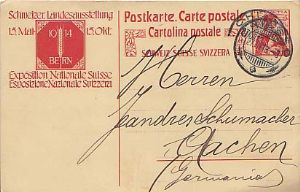 Schweizer Landesausstellung
15. Mai 15. Okt.
1914
BERN
Exposition Nationale Suisse
Esposizione Nazionale Svizzera
Postkarte. Carte postale
Cartolina postale
SCHWEIZ. SUISSE. SVIZZERA
Herren
Jeandres Schumacher
Aachen
Germania